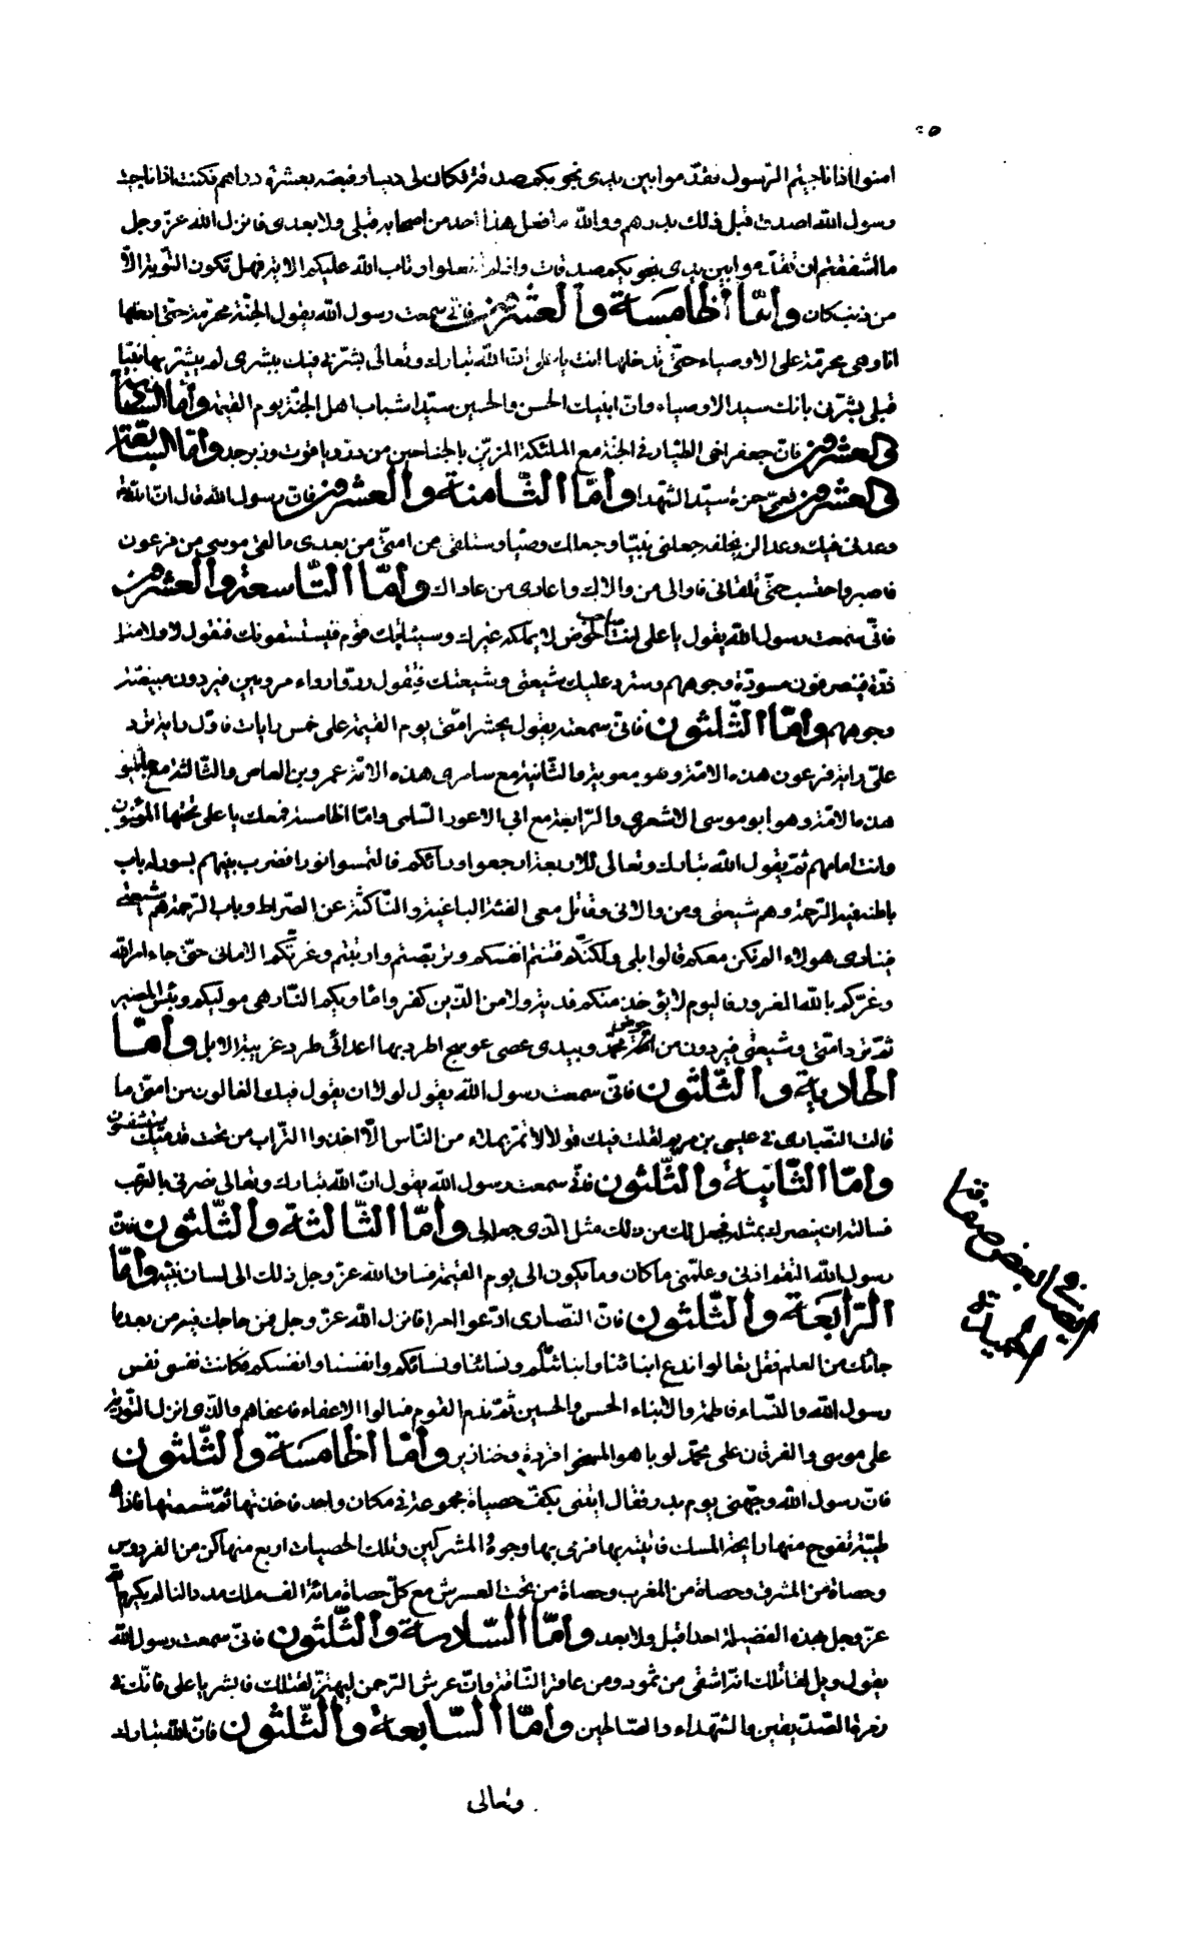 امنوا اذا ناجيتم الرّسول فقدّموا بين يدى نجويكم صدقة فكان لى دينار فبعته بعشرة دراهم فكنت اذا ناجيت
رسول الله اصدق قبل ذلك بدرهم ووالله ما فعل هذا احد من اصحابه قبلى ولا بعدى فانزل الله عزّ وجل
ءاشفقتم ان تقدّموا بين يدى نجويكم صدقات واذ لم تفعلوا وتاب الله عليكم الاية فهل تكون التّوبة الّا
من ذنب كان وامّا الخامسة والعشرون فانّى سمعت رسول الله يقول الجنّة محرّمة حتّى ادخلها
انا وهى محرّمة على الاوصياء حتّى تدخلها انت يا على انّ الله تبارك وتعالى بشّرنى فيك ببشرى لم يبشّر بها نبيّا
قبلى بشّرنى بانّك سيد الاوصياء وانّ ابنيك الحسن والحسين سيّدا شباب اهل الجنّة يوم القيمة وامّا السّادسة
والعشرون فانّ جعفرا اخى الطّيار فى الجنّة مع الملئكة المزيّن بالجناحين من درّ وياقوت وزبرجد وامّا السّابعة
والعشرون فعمّى حمزة سيّد الشّهداء وامّا الثّامنة والعشرون فانّ رسول الله قال انّ الله
وعدنى فيك وعدا لن يخلفه جعلنى نبيّا وجعلك وصيّا وستلقى من امتى من بعدى ما لقى موسى من فرعون
فاصبر واحتسب حتّى تلقانى فاوالى من والاك واعادى من عاداك وامّا التّاسعة والعشرون
فانّى سمعت رسول الله يقول يا على انت صاحب الحوض لا يملكه غيرك وسيئاتيك قوم فيستسقونك فتقول لا ولا مثل
ذرّة فينصرفون مسودّة وجوههم وسترد عليك شيعتى وشيعتك فتقول ردّوا رواء مرويين فيردون مبيضّة
وجوههم وامّا الثّلثون فانّى سمعته يقول يحشر امّتى يوم القيمة على خمس رايات فاوّل راية ترد
علىّ راية فرعون هذه الامّة وهو معوية والثّانية مع سامرى هذه الامّة عمرو بن العاص والثّالثة مع جاثليق
هذه الامّة وهو ابو موسى الاشعرى والرّابعة مع ابى الاعور السّلمى وامّا الخامسة فمعك يا على تحتها المؤمنون
وانت امامهم ثمّ يقول الله تبارك وتعالى للاربعة ارجعوا وراءكم فالتمسوا نورا فضرب بينهم بسور له باب
باطنه فيه الرّحمة وهم شيعتى ومن والانى وقاتل معى الفئة الباغية والنّاكثة عن الصّراط وباب الرّحمة هم شيعتى
فينادى هولاء الم نكن معكم قالوا بلى ولكنّكم فتنتم انفسكم وتربّصتم وارتبتم وغرّتكم الامانى حتّى جاء امر الله
وغرّكم بالله الغرور فاليوم لا يؤخذ منكم فدية ولا من الّذين كفروا ماويكم النّار هى موليكم وبئس المصير
ثمّ ترد امّتى وشيعتى فيردون من حوض محمّد وبيدى عصى عوسج اطرد بها اعدائى طرد غريبة الابل وامّا
الحادية والثّلثون فانّى سمعت رسول الله يقول لولا ان يقول فيك الغالون من امتى ما
قالت النّصارى فى عيسى بن مريم لقلت فيك قولا لا تمرّ بملاء من النّاس الّا اخذوا التّراب من تحت قدميك يستشفون
وامّا الثّانية والثّلثون فانّى سمعت رسول الله يقول انّ الله تبارك وتعالى نصرنى بالرّعب
فسالته ان ينصرك بمثله فجعل لك من ذلك مثل الّذى جعل لى وامّا الثّالثة والثّلثون فانّ
رسول الله التقم اذنى وعلّمنى ما كان وما يكون الى يوم القيمة فساق الله عزّ وجل ذلك الى لسان نبيّه وامّا
الرّابعة والثّلثون فانّ النّصارى ادّعوا امرا فانزل الله عزّ وجل فمن حاجّك فيه من بعد ما
جائك من العلم فقل تعالوا ندع ابنائنا وابنائكم ونسائنا ونسائكم وانفسنا وانفسكم فكانت نفسى نفس
رسول الله والنّساء فاطمة والابناء الحسن والحسين ثمّ ندم القوم فسالوا الاعفاء فاعفاهم والّذى انزل التّورية
على موسى والفرقان على محمّد لو باهلونا لمسخوا قردة وخنازير وامّا الخامسة والثّلثون
فانّ رسول الله وجّهنى يوم بدر فقال ايتنى بكفّ حصيات مجموعة فى مكان واحد فاخذتها ثمّ شممتها فاذا هى
طيّبة تفوح منها رايحة المسك فاتيته بها فرمى بها وجوه المشركين وتلك الحصيات اربع منها كن من الفردوس
وحصاة من المشرق وحصاة من المغرب وحصاة من تحت العرش مع كلّ حصاة مائة الف ملك مددا لنا لم يكرم الله
عزّ وجل بهذه الفضيلة احدا قبل ولا بعد وامّا السّادسة والثّلثون فانّى سمعت رسول الله
يقول ويل لقاتلك انّه اشقى من ثمود ومن عاقر النّاقة وانّ عرش الرّحمن ليهتزّ لقتلك فابشر يا على فانّك فى
زمرة الصّدّيقين والشّهداء والصّالحين وامّا السّابعة والثّلثون فانّ الله تبارك
وتعالى